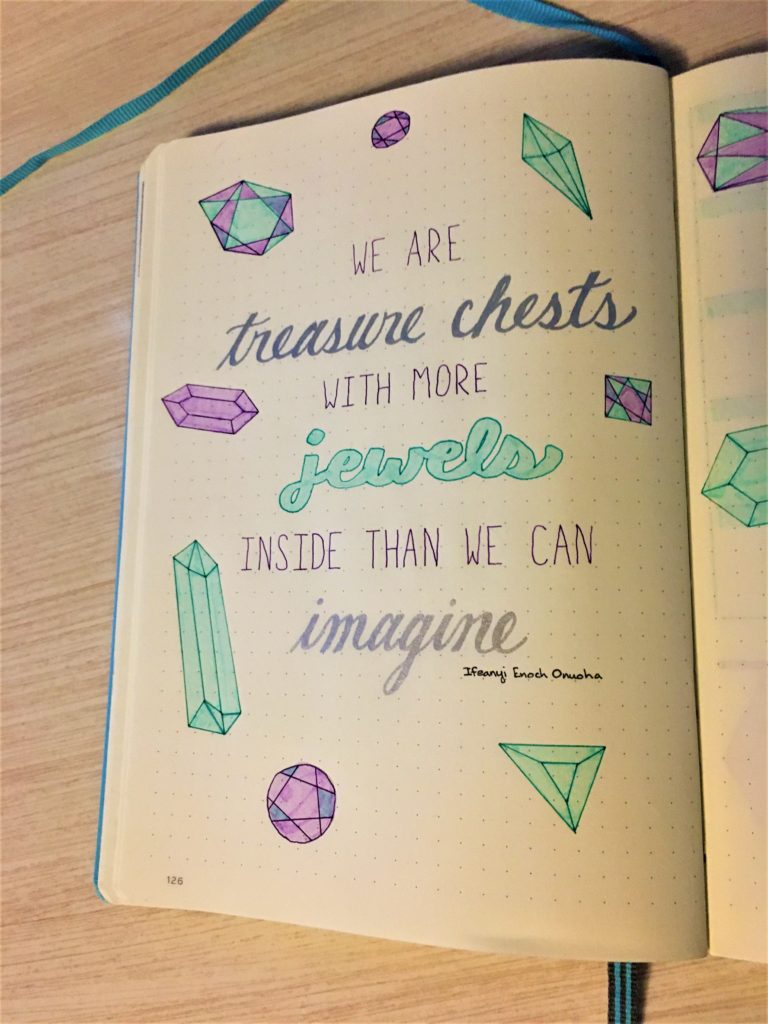 WE ARE
treasure chests
WITH MORE
jewels
INSIDE THAN WE CAN
imagine
Ifeanyi Enoch Onuoha
126